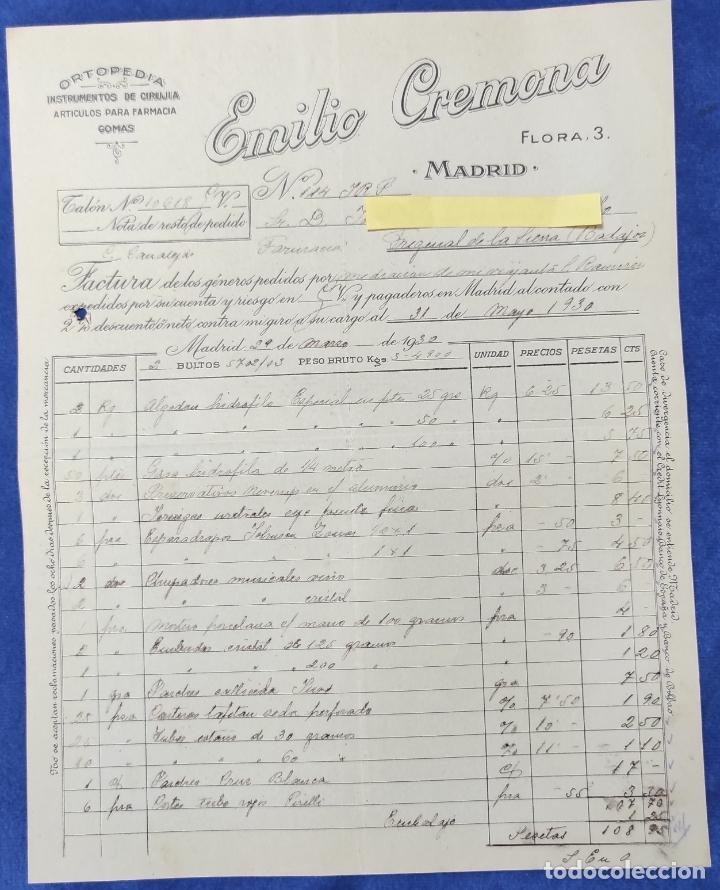 ORTOPEDIA
INSTRUMENTOS DE CIRUJIA
ARTICULOS PARA FARMACIA
GOMAS
Emilio Cremona
FLORA, 3.
MADRID
Talón Nº 10618 G.V.
Nota de resto de pedido
Nº 114
Sr. D.
C. Canalejas
Farmacia
Fregenal de la Sierra (Badajoz)
Factura de los géneros pedidos por mediacion de mi viajante
expedidos por su cuenta y riesgo en G.V. y pagaderos en Madrid al contado con
2 % descuento ó neto contra mi giro a su cargo al 31 de Mayo 1930
Madrid 29 de Marzo de 1930
CANTIDADES 2 BULTOS 5702/03 PESO BRUTO Kgs 3-4900 UNIDAD PRECIOS PESETAS CTS
2 Kg Algodon hidrofilo Especial en ptes 25 grs Kg 6 25 13 50
1 " " " " 50 " " 6 25
1 " " " " 100 " " 5 75
50 ptes Gasa hidrofila de 1/4 metro % 15 - 7 50
3 doc Preservativos en el aluminio doc 2 - 6
1 " uretrales 8 45
6 pza Esparadrapo Johnson pza - 50 3 -
6 " " " " 1 x 1 " - 75 4 50
2 doc Chupadores musicales doc 3 25 6 50
2 " " " cristal " 3 - 6 -
1 pza Mortero porcelana c/ mano de 100 gramos pza 4 -
2 " Embudos cristal de 125 gramos " - 90 1 80
1 " " " " 200 " " 1 20
1 gra Parches gra 7 50
25 pza Carteras tafetan seda perforado % 7 50 1 90
25 " Tubos estaño de 30 gramos % 10 - 2 50
10 " " " " 60 " % 11 - 1 10
1 c/ Parches Cruz Blanca c/ 17 -
6 pza tubo rojas Pirelli pza - 55 3 30
107 70
Embalaje 1 25
Pesetas 108 95
S. E u O
No se aceptan reclamaciones pasados los ocho dias despues de la recepcion de la mercancia
Caso de divergencia el domicilio se entiende Madrid
todocoleccion